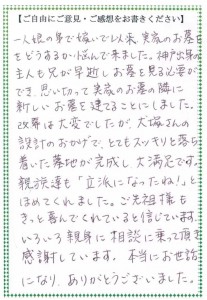 【ご自由にご意見・ご感想をお書きください】
一人娘の身で嫁いで以来、実家のお墓を
どうするか悩んで来ました。神戸出身の
主人も兄が早逝しお墓を見る必要が
でき、思い切って実家のお墓の隣に
新しいお墓を建てることにしました。
改葬は大変でしたが、大塚さんの
設計のおかげで、とてもスッキリと落ち
着いた墓地が完成し、大満足です。
親族達も「立派になったね!」と
ほめてくれました。ご先祖様も
きっと喜んでくれていると信じています。
いろいろ親身に相談に乗って頂き
感謝しています。本当にお世話
になり、ありがとうございました。